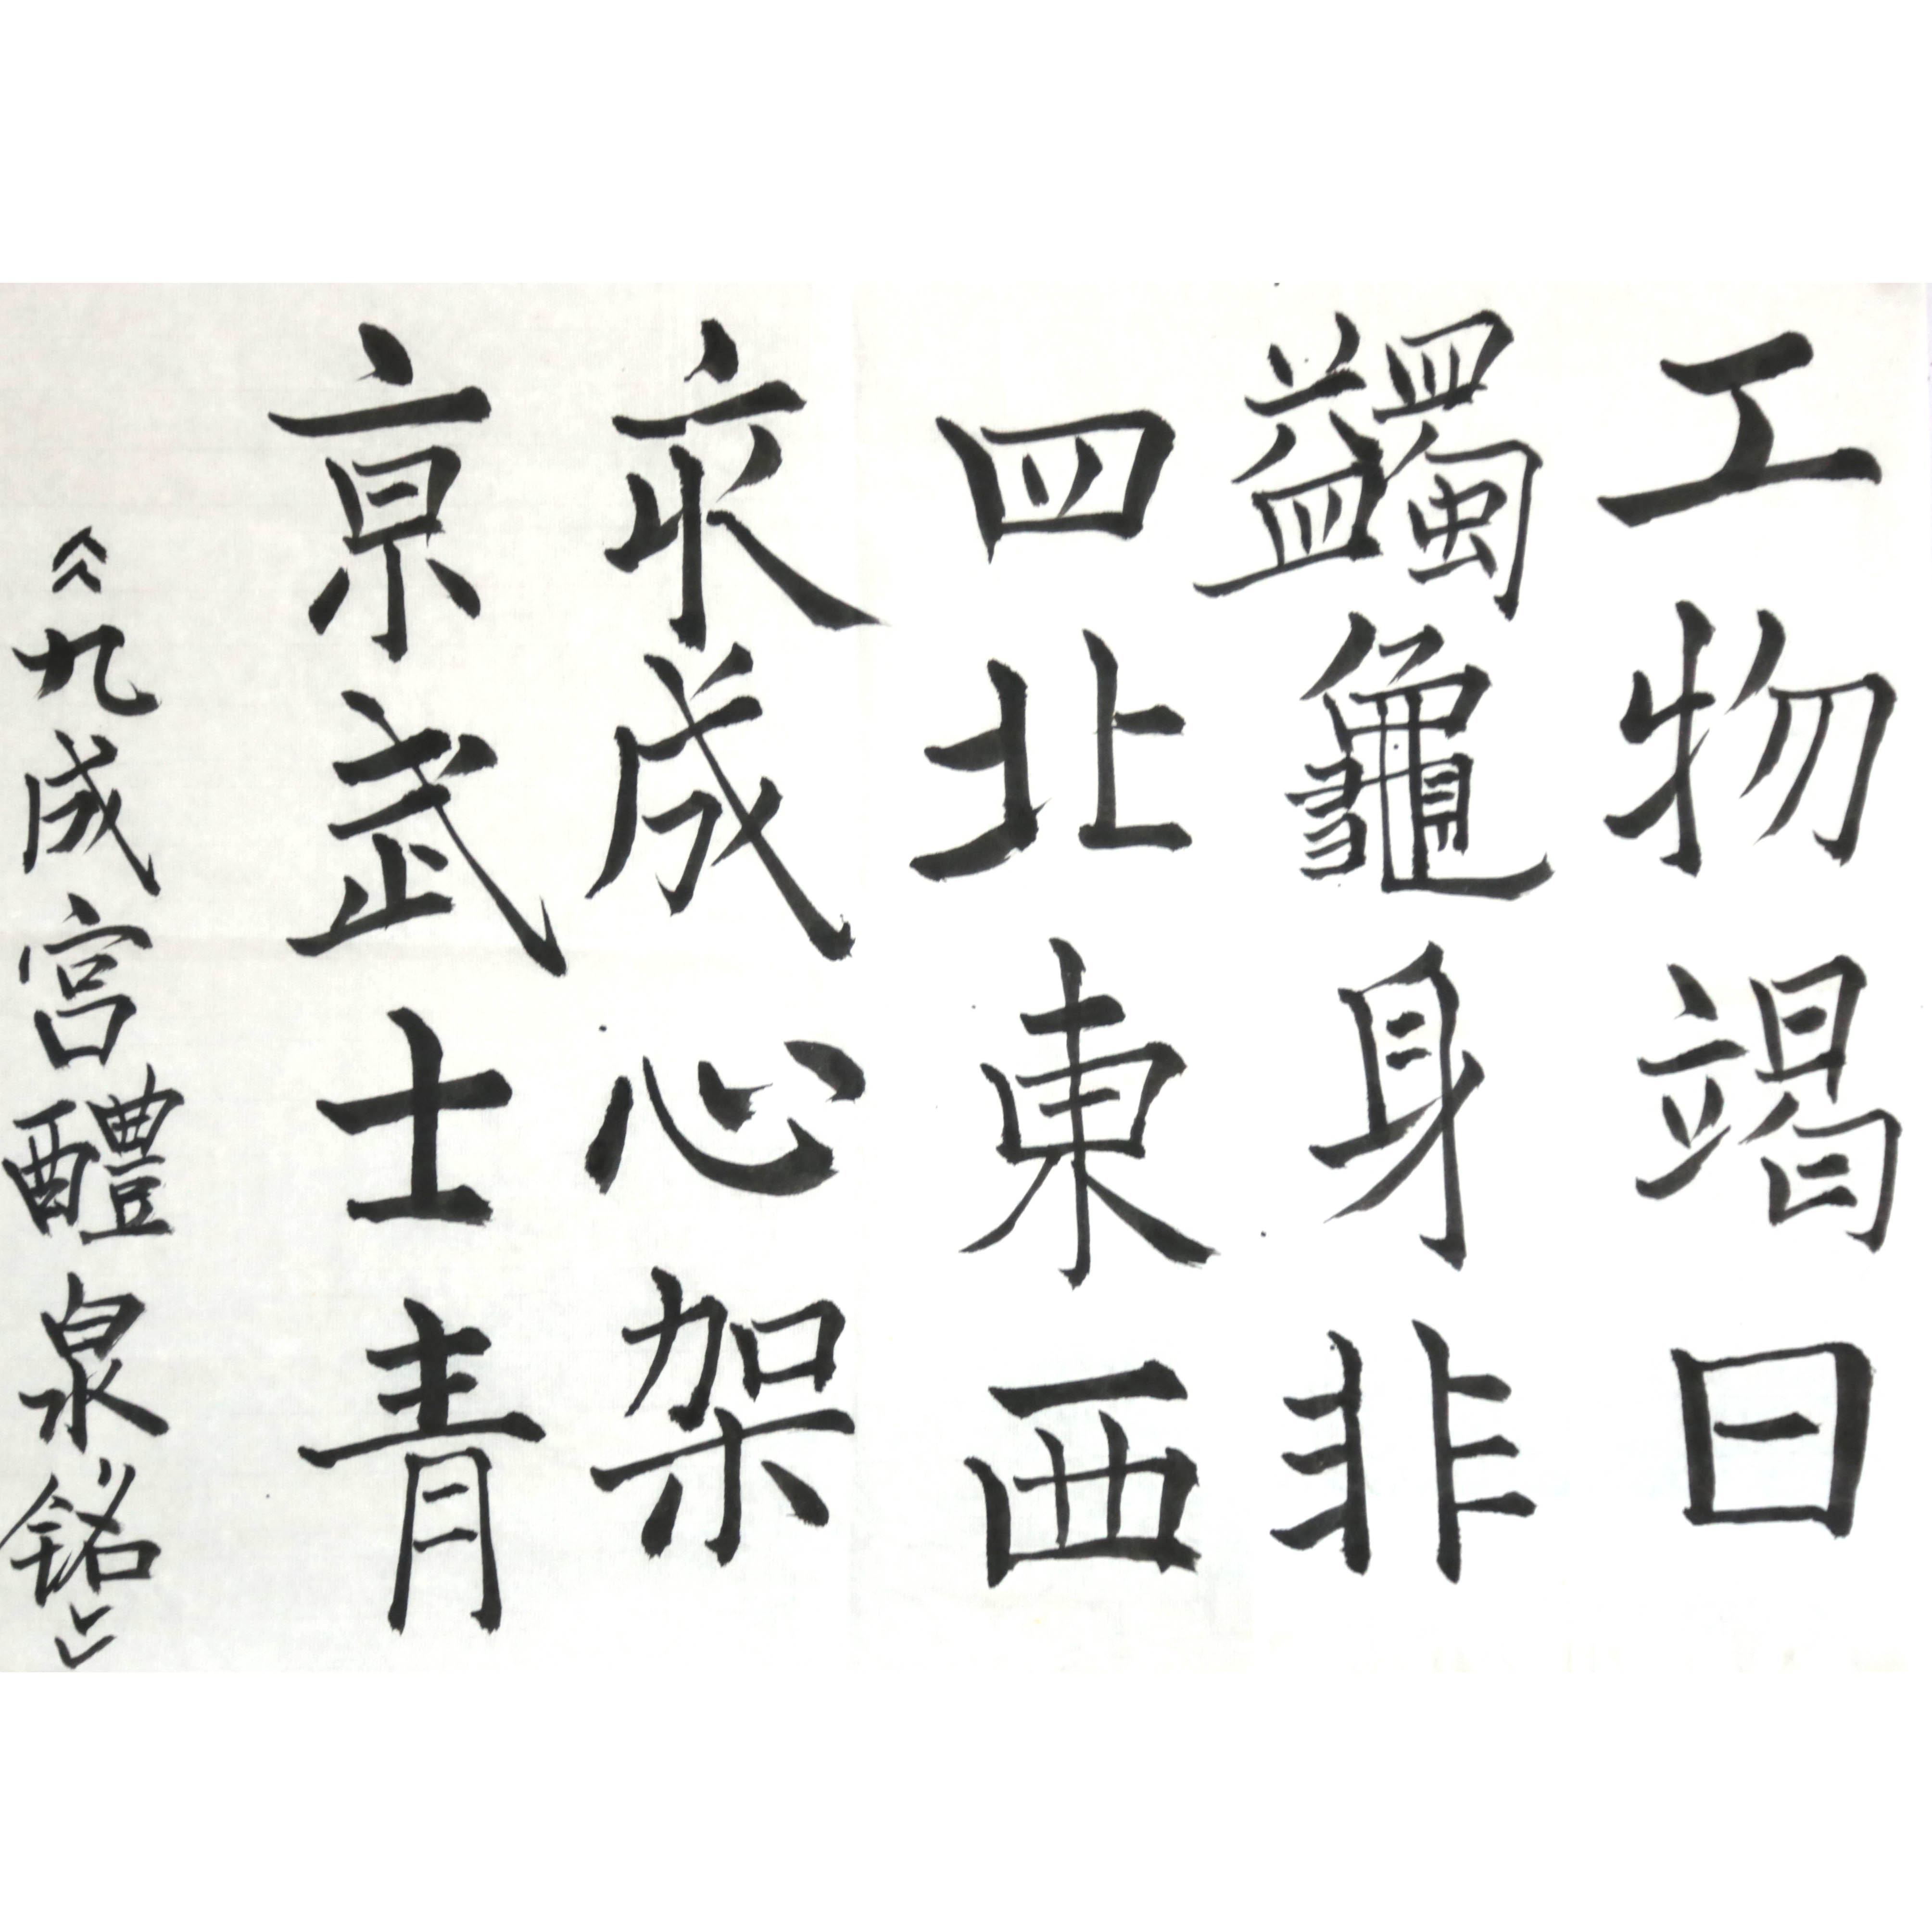 工物竭日
蠲龜身非
四北東西
衣成心架
亰武士青
《九成宫醴泉铭》